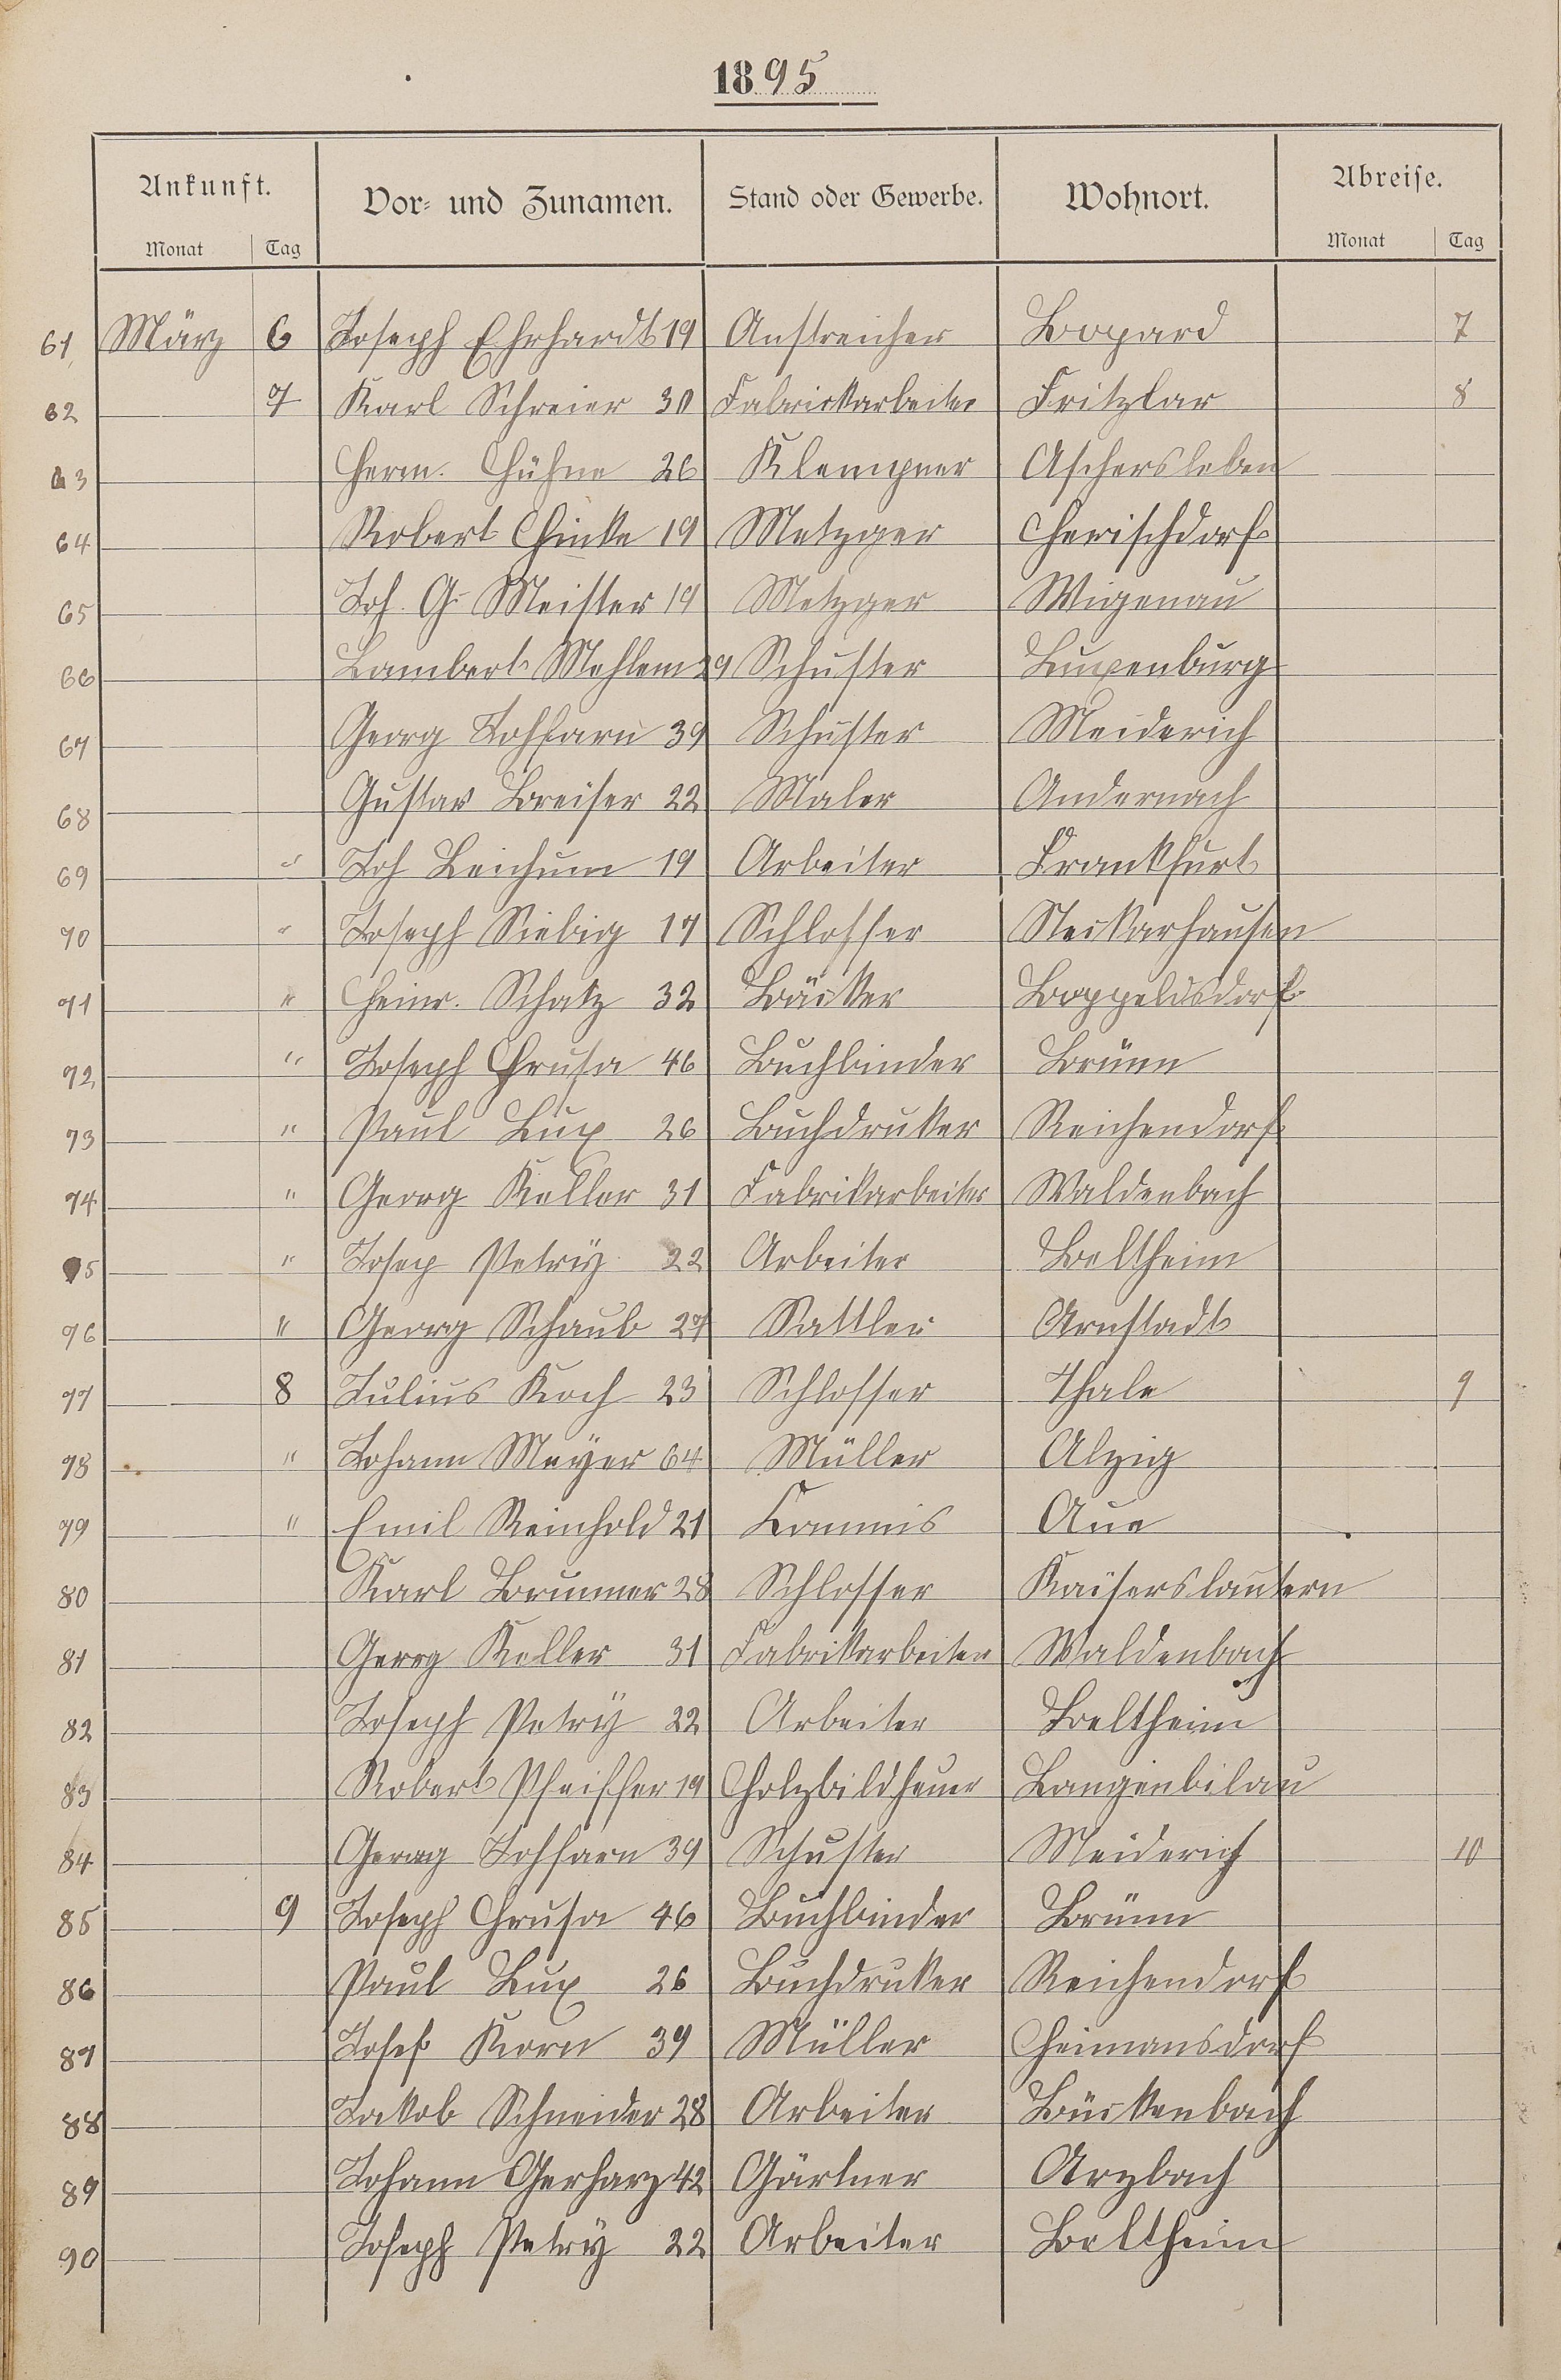 1895
Ankunft. Vor- und Zunamen. Stand oder Gewerbe. Wohnort. Abreise.
Monat Tag Monat Tag
61, März 6 Joseph Ehrhardt 19 Anstreicher Bopard 7
62 7 Karl Schreier 30 Fabrickarbeiter Fritzlar 8
63 Herm. Hühne 26 Klempner Aschersleben
64 Robert Hinke 19 Metzger Herischdorf
65 Joh. G. Meister 19 Metzger Wigenau
66 Lambert Mehlem 29 Schuster Luxenburg
67 Georg 39 Schuster Meiderich
68 Gustav Breiser 22 Maler Andernach
69 " Joh Leichum 19 Arbeiter Frankfurt
70 " Joseph Siebig 17 Schlosser Neckarhausen
71 " Heinr. Schatz 32 Bäcker Boppeldsdorf
72 " Joseph Hrusa 46 Buchbinder Brünn
73 " Paul Lux 26 Buchdruker Reichendorf
74 " Georg Keller 31 Fabrikarbeiter Waldenbach
75 " Josep Petrÿ 22 Arbeiter Beltheim
76 " Georg Schaub 27 Sattler Arnstadt
77 8 Julius Koch 23 Schlosser Thale 9
78 " Johann Meÿer 64 Müller Alzig
79 " Emil Reinhold 21 Kommis Aue
80 Karl Brunner 28 Schlosser Kaiserslautern
81 Georg Keller 31 Fabrikarbeiter Waldenbach
82 Joseph Petrÿ 22 Arbeiter Beltheim
83 Robert Pfeiffer 19 Holzbildhauer Langenbilau
84 Georg 39 Schuster Meiderich 10
85 9 Joseph Hrusa 46 Buchbinder Brünn
86 Paul Lux 26 Buchdruker Reichendorf
87 Josef Korn 39 Müller Heimansdorf
88 Jakob Schneider 28 Arbeiter Bückenbach
89 Johann Gerharz 42 Gärtner Arzbach
90 Joseph Petry 22 Arbeiter Beltheim